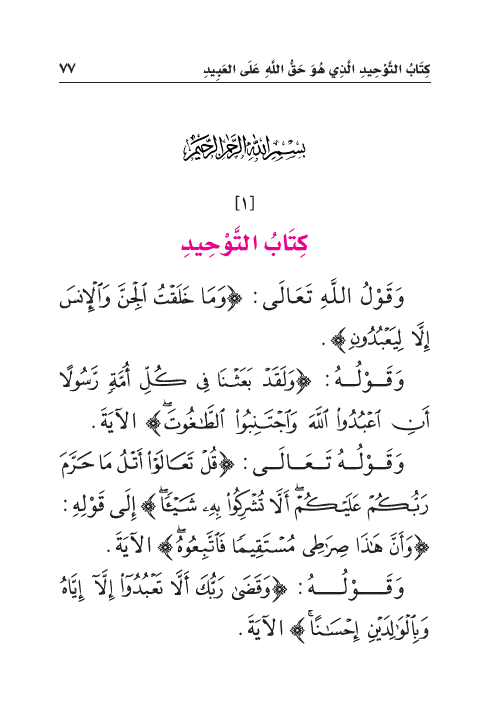 كِتَابُ التَّوْحِيدِ الَّذِي هُوَ حَقُّ اللَّهِ عَلَى العَبِيدِ ٧٧
بِسْمِ اللهِ الرَّحْمَٰنِ الرَّحِيمِ
[١]
كِتَابُ التَّوْحِيدِ
وَقَوْلُ اللَّهِ تَعَالَى: ﴿وَمَا خَلَقْتُ ٱلْجِنَّ وَٱلْإِنسَ
إِلَّا لِيَعْبُدُونِ﴾.
وَقَوْلُهُ: ﴿وَلَقَدْ بَعَثْنَا فِي كُلِّ أُمَّةٍ رَّسُولًا
أَنِ ٱعْبُدُوا۟ ٱللَّهَ وَٱجْتَنِبُوا۟ ٱلطَّٰغُوتَۖ﴾ الآيَةَ.
وَقَوْلُهُ تَعَالَى: ﴿قُلْ تَعَالَوْا۟ أَتْلُ مَا حَرَّمَ
رَبُّكُمْ عَلَيْكُمْۖ أَلَّا تُشْرِكُوا۟ بِهِۦ شَيْـًٔاۖ﴾ إِلَى قَوْلِهِ:
﴿وَأَنَّ هَٰذَا صِرَٰطِى مُسْتَقِيمًا فَٱتَّبِعُوهُۖ﴾ الآيَةَ.
وَقَوْلُهُ: ﴿وَقَضَىٰ رَبُّكَ أَلَّا تَعْبُدُوٓا۟ إِلَّآ إِيَّاهُ
وَبِٱلْوَٰلِدَيْنِ إِحْسَٰنًاۚ﴾ الآيَةَ.